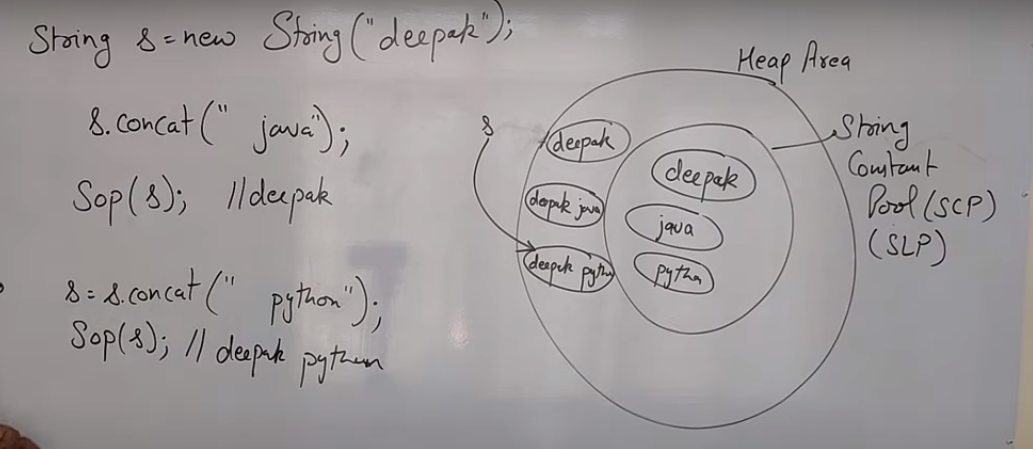 String s = new String("deepak");
s.concat(" java");
Sop(s); //deepak
s = s.concat(" python");
Sop(s); // deepak python
Heap Area
s
deepak
deepak java
deepak pytho
deepak
java
python
String
Constant
Pool (SCP)
(SLP)